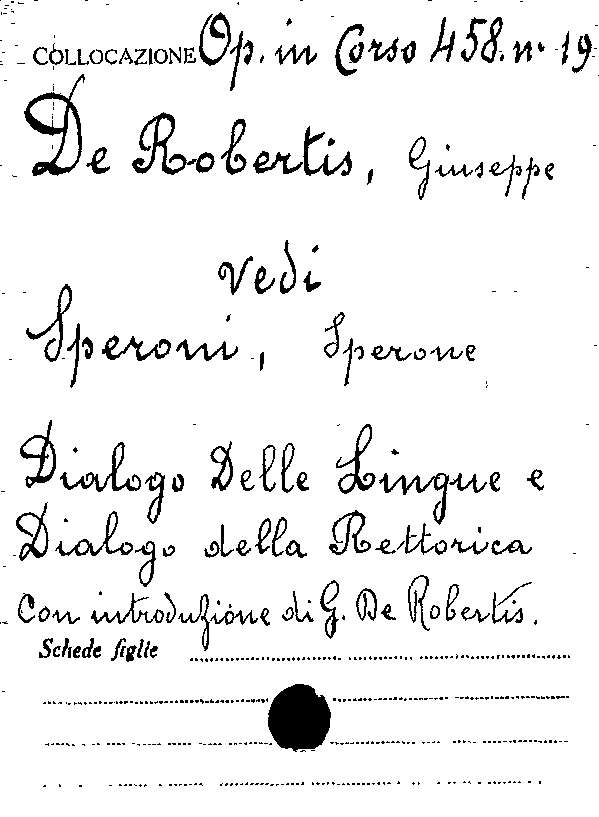 COLLOCAZIONE Op. in Corso 458. n. 19
De Robertis, Giuseppe
vedi
Speroni, Sperone
Dialogo Delle Lingue e
Dialogo della Rettorica
Con introduzione di G. De Robertis.
Schede figlie